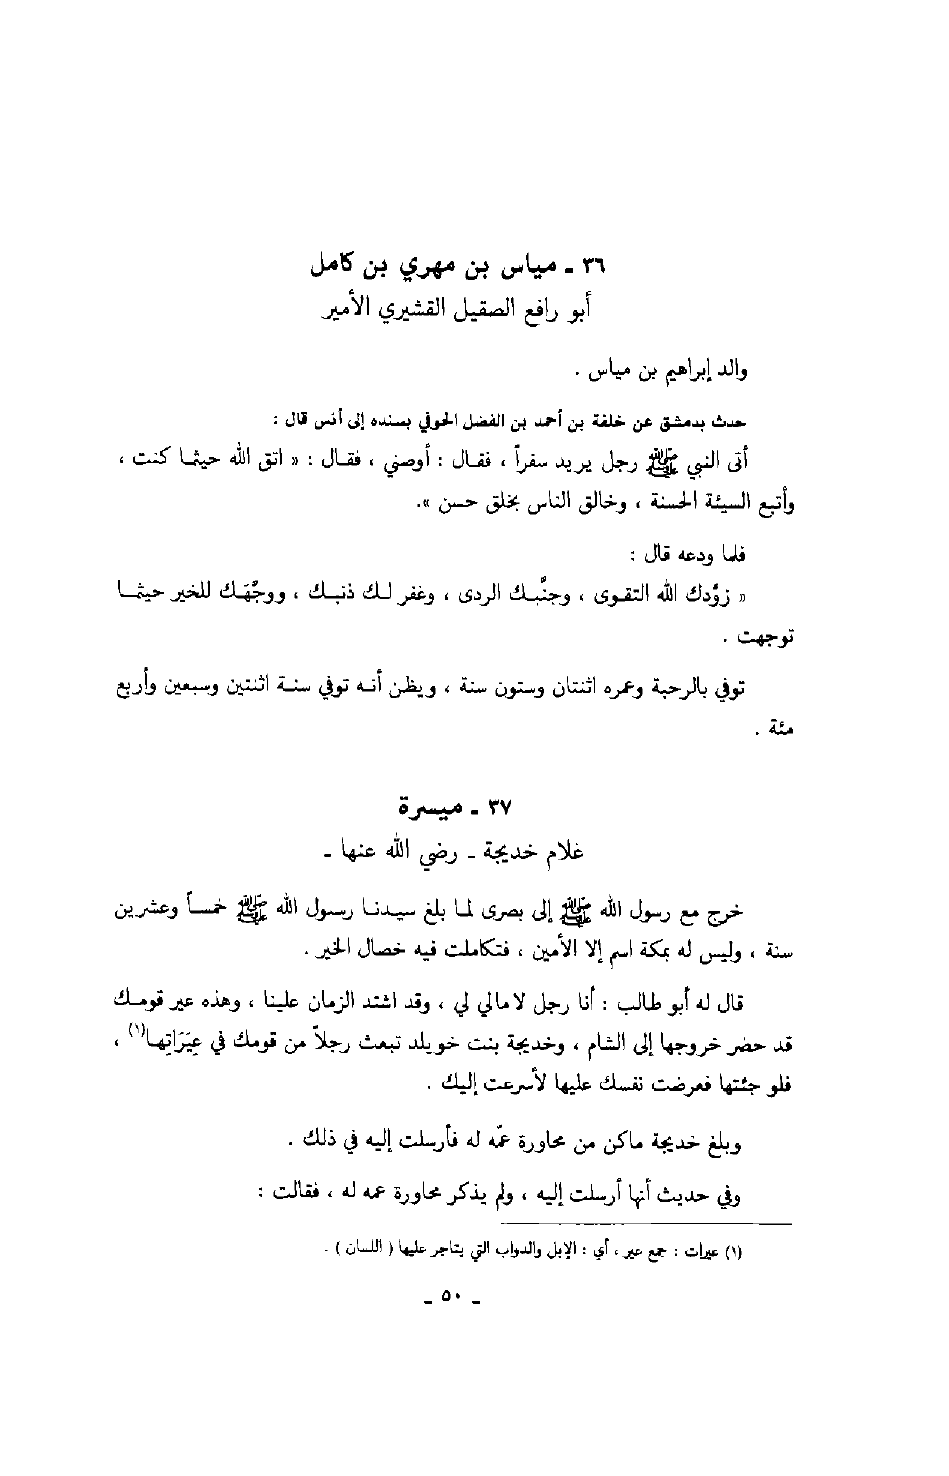 ٣٦ ـ مياس بن مهري بن كامل
أبو رافع الصقيل القشيري الأمير
والد إبراهيم بن مياس .
حدث بدمشق عن خلفة بن أحمد بن الفضل الحوفي بسنده إلى أنس قال :
أتى النبي ﷺ رجل يريد سفراً ، فقال : أوصني ، فقال : « اتق الله حيثما كنت ،
وأتبع السيئة الحسنة ، وخالق الناس بخلق حسن ».
فلما ودعه قال :
« زوَّدك الله التقوى ، وجنَّبك الردى ، وغفر لك ذنبك ، ووجَّهك للخير حيثما
توجهت .
توفي بالرحبة وعمره اثنتان وستون سنة ، ويظن أنه توفي سنة اثنتين وسبعين وأربع
مئة .
٣٧ ـ ميسرة
غلام خديجة ـ رضي الله عنها ـ
خرج مع رسول الله ﷺ إلى بصرى لما بلغ سيدنا رسول الله ﷺ خمساً وعشرين
سنة ، وليس له بمكة اسم إلا الأمين ، فتكاملت فيه خصال الخير .
قال له أبو طالب : أنا رجل لا مالي لي ، وقد اشتد الزمان علينا ، وهذه عير قومك
قد حضر خروجها إلى الشام ، وخديجة بنت خويلد تبعث رجلاً من قومك في عِيَرَاتِها(١) ،
فلو جئتها فعرضت نفسك عليها لأسرعت إليك .
وبلغ خديجة ماكن من محاورة عمّه له فأرسلت إليه في ذلك .
وفي حديث أنها أرسلت إليه ، ولم يذكر محاورة عمه له ، فقالت :
(١) عيرات : جمع عير ، أي : الإبل والدواب التي يتاجر عليها ( اللسان ) .
ـ ٥٠ ـ